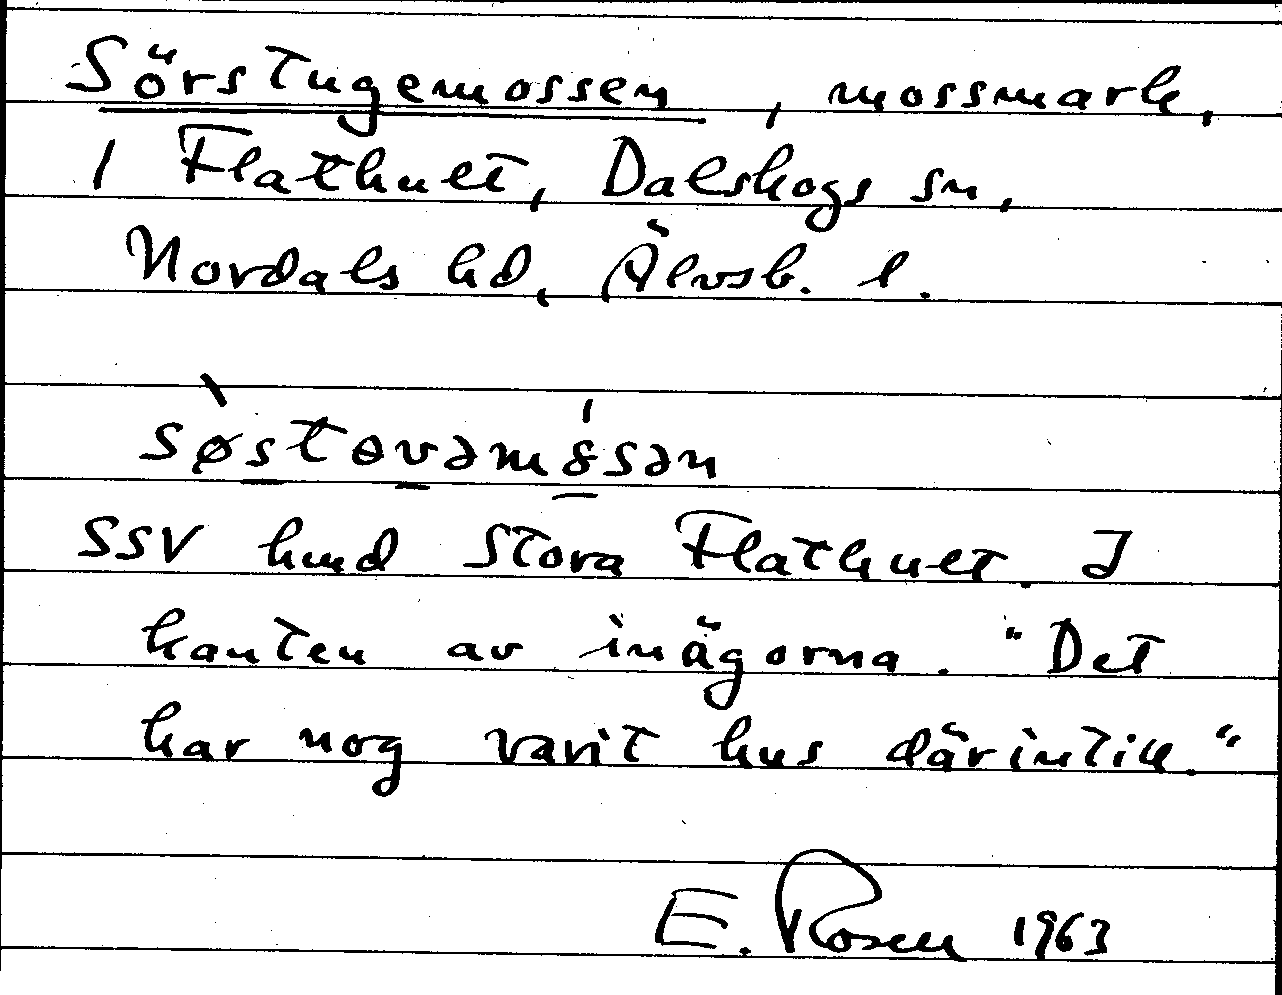 Sörstugemossen, mossmark,
i Flathult, Dalskogs sn,
Nordals hd, Älvsb. l.
sø̀stɵvəmósən
SSV hmd Stora Flathult. I
kanten av inägorna. "Det
har nog varit hus därintill."
E. Rosen 1963